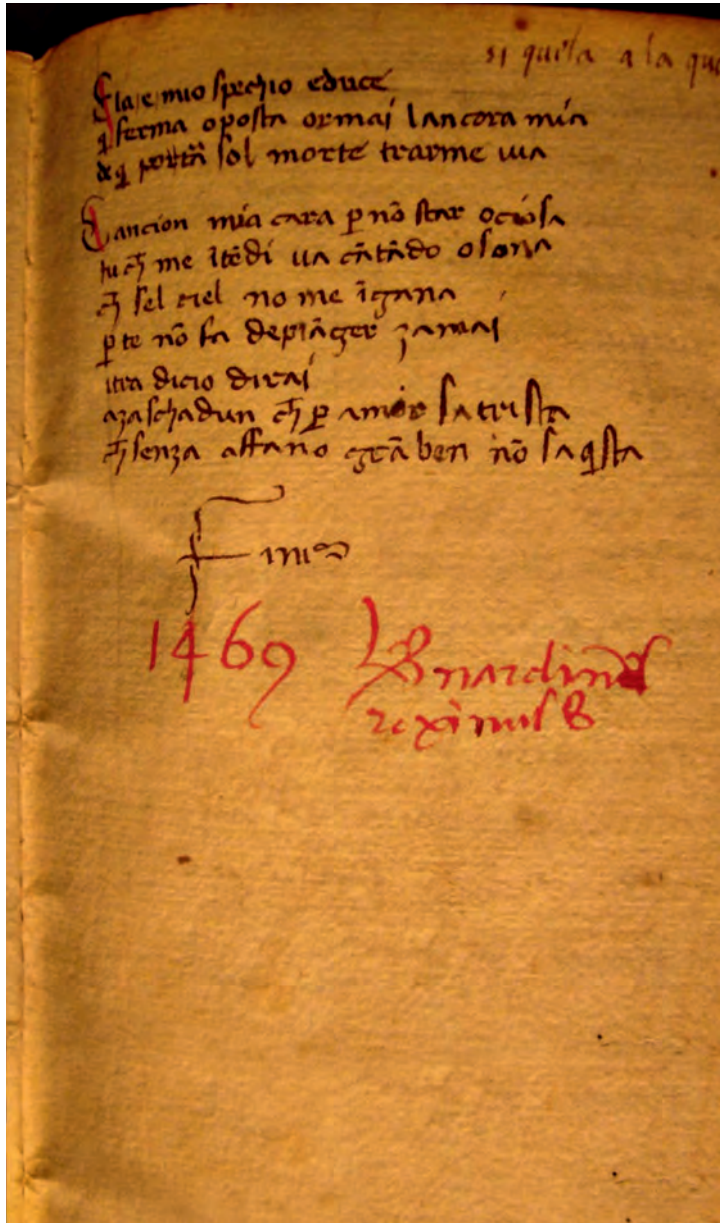 si quela a la que
Ela e mio spechio e duce
q̄ ferma o posta ormai lancora mia
de q̄ portā sol morte trarme uia
Cancion mia cara p̄ nō star ociosa
tu ch̄ me ītēdi ua cātādo o sona
ch̄ sel ciel no me īgana
p̄ te nō fa de piāger zamai
itra dicio dirai
azaschadun ch̄ p̄ amor satrista
ch̄ senza affano grā ben nō saq̄sta
Finis
1469 Bnardinus